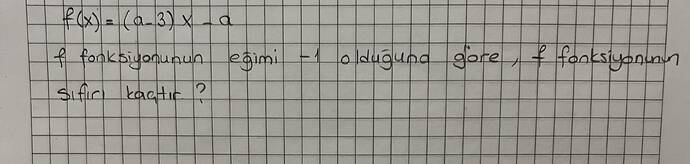 f(x) = (a-3) x - a
f fonksiyonunun eğimi -1 olduğuna göre, f fonksiyonunun
sıfırı kaçtır ?